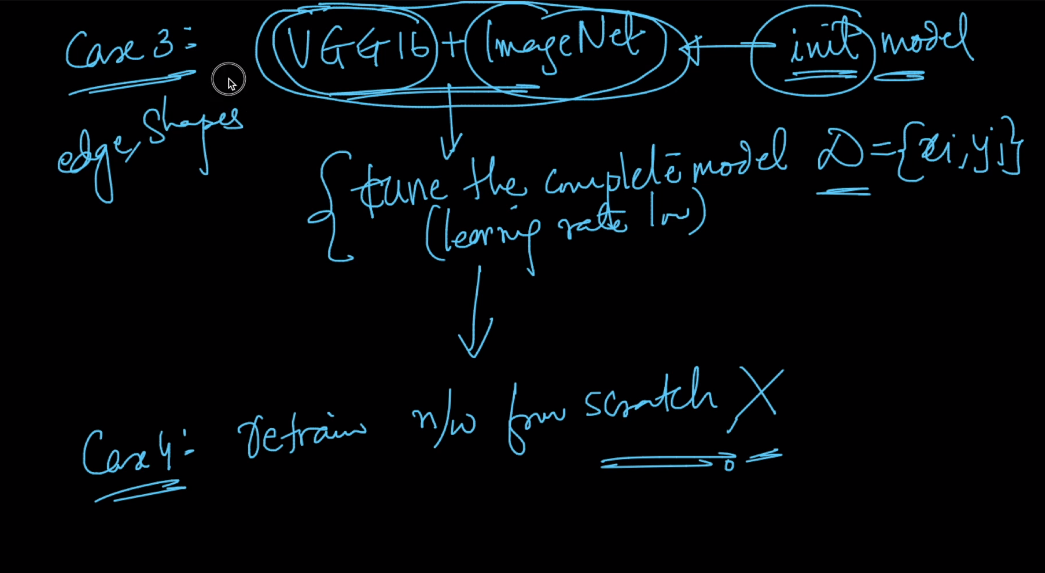 Case 3:
VGG16 + ImageNet ← init model
edge, Shapes
tune the complete model D = {xi, yi}
(learning rate low)
Case 4: retrain n/w from scratch X